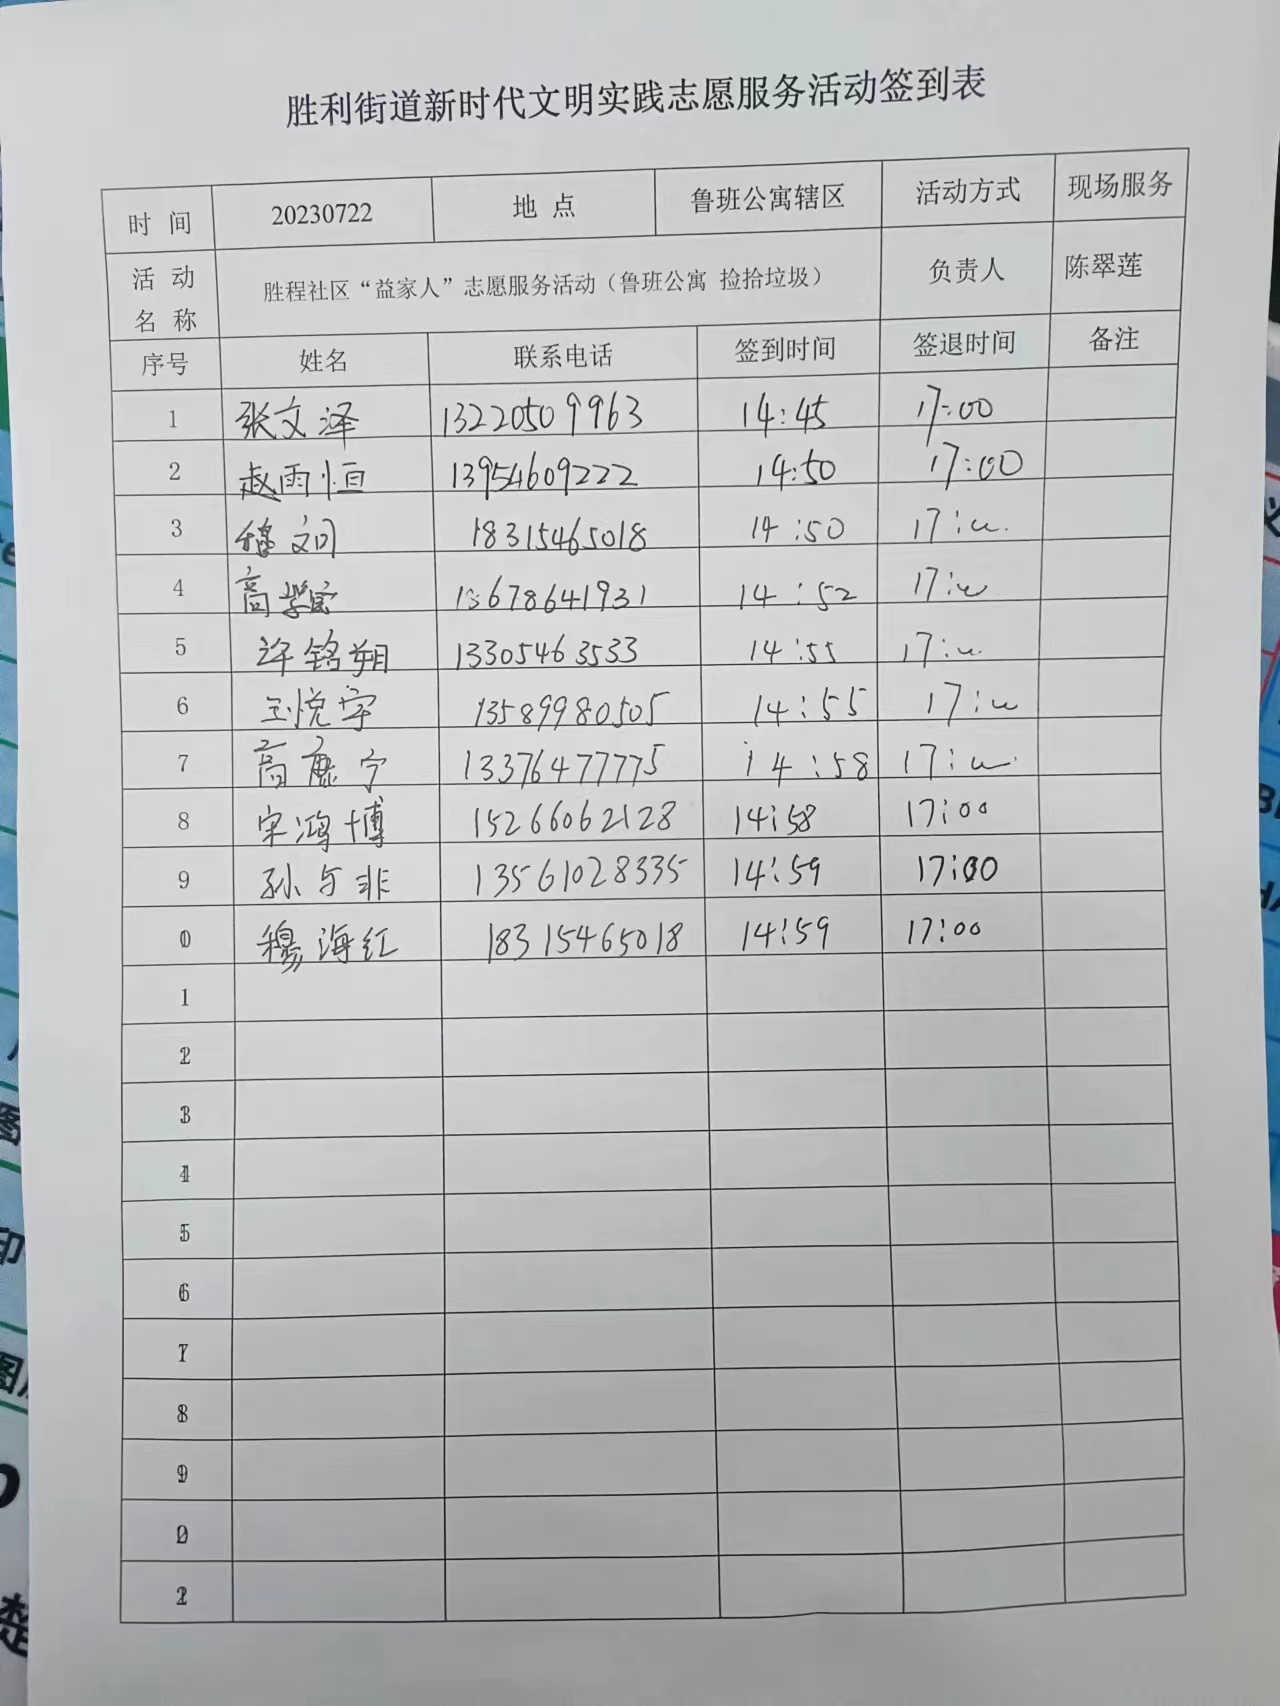 胜利街道新时代文明实践志愿服务活动签到表
时 间 20230722 地 点 鲁班公寓辖区 活动方式 现场服务
活 动 名 称 胜程社区“益家人”志愿服务活动（鲁班公寓 捡拾垃圾） 负责人 陈翠莲
序号 姓名 联系电话 签到时间 签退时间 备注
1 张文泽 13220509963 14:45 17:00
2 赵雨恒 13954609222 14:50 17:00
3 穆文闻 18315465018 14:50 17:00
4 高 13678641931 14:52 17:00
5 许铭朔 13305463533 14:55 17:00
6 王悦宇 13589980505 14:55 17:00
7 高康宁 13376477775 14:58 17:00
8 宋鸿博 15266062128 14:58 17:00
9 孙与非 13561028335 14:59 17:00
0 穆海红 18315465018 14:59 17:00
1
2
3
4
5
6
7
8
9
2